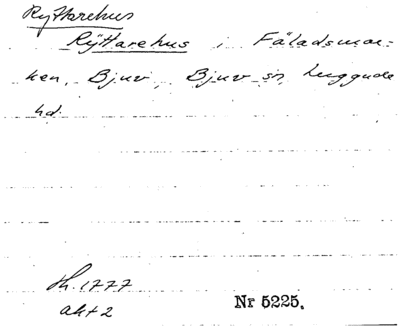 Ryttarehus
Ryttarehus i Fäladsmar-
ken, Bjuv, Bjuv sn, Luggude
hd.
Lh. 1777
akt 2
Nr 5225.